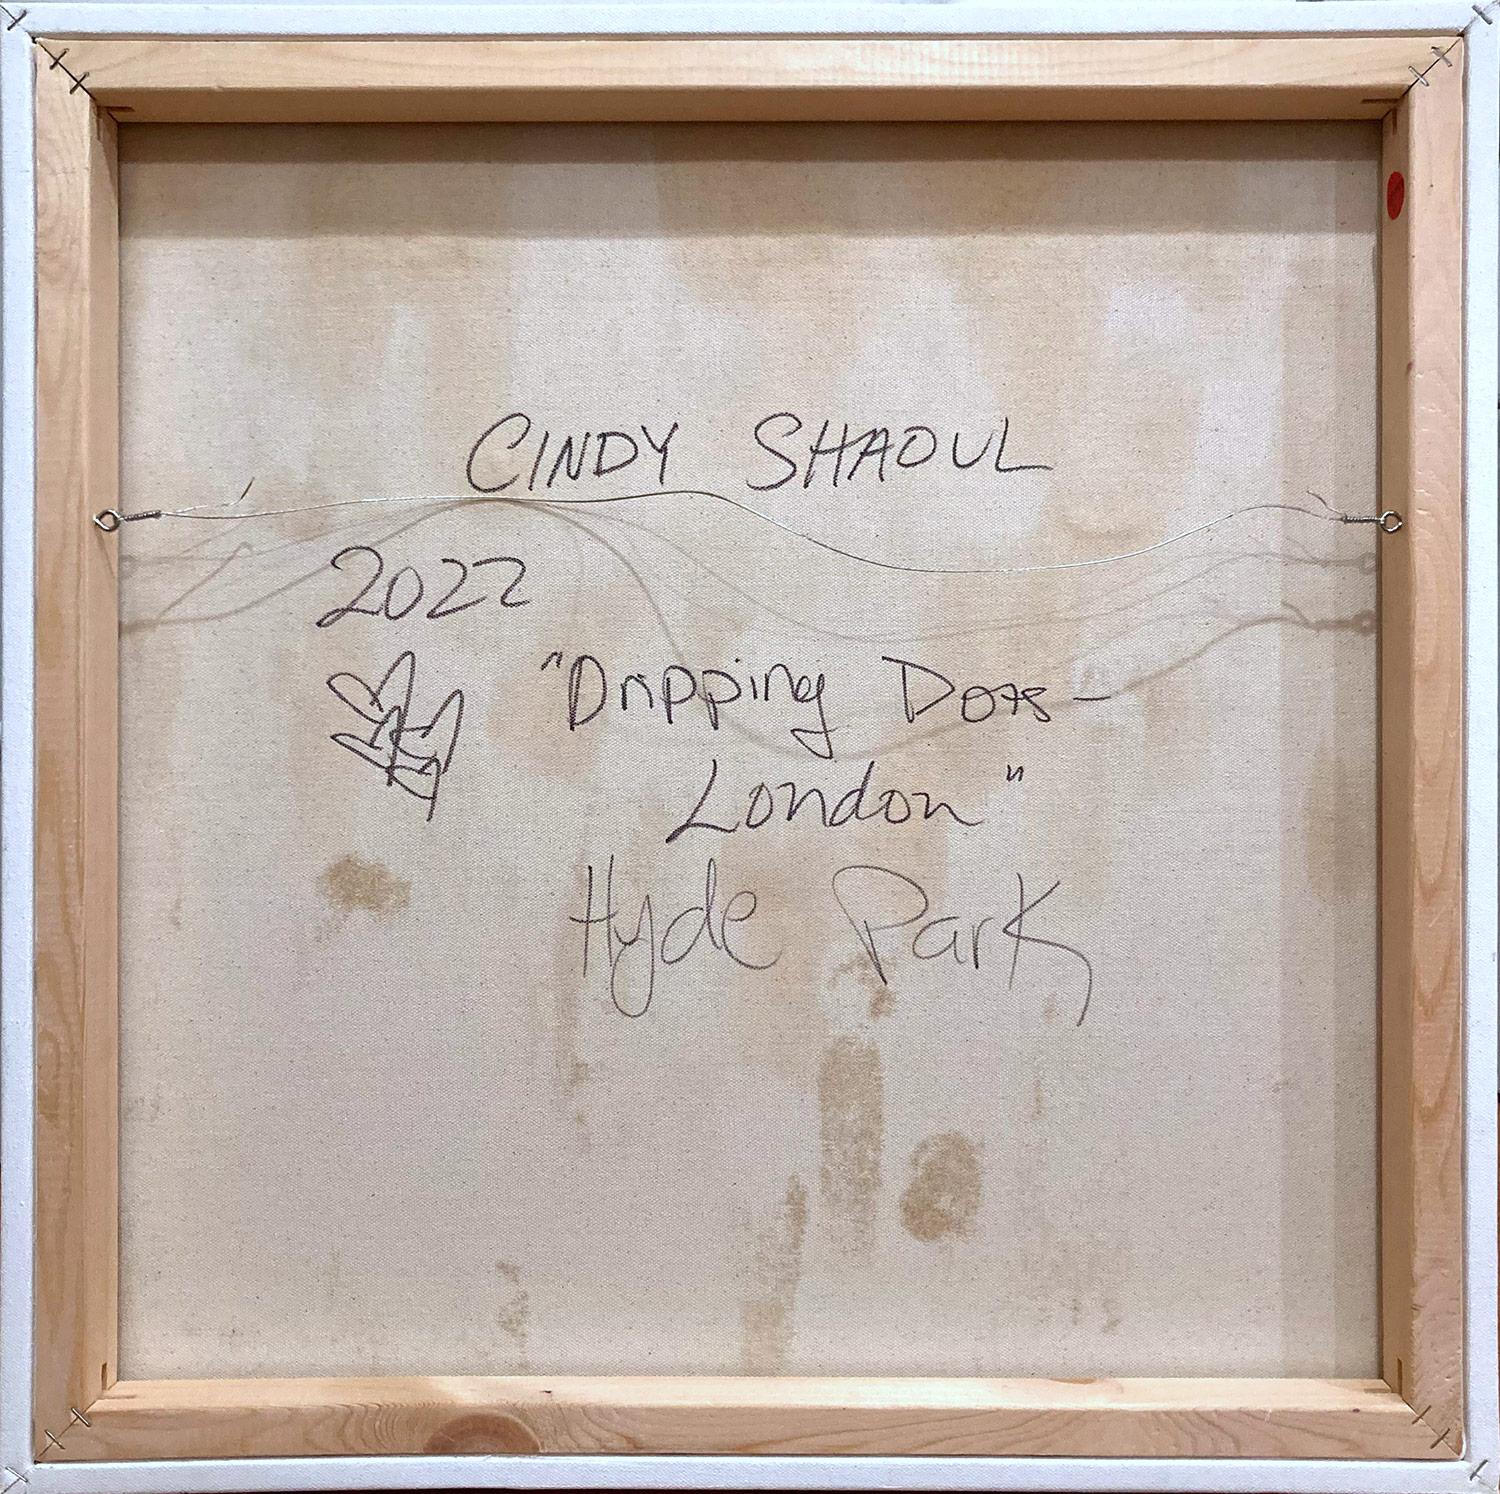 CINDY SHAOUL
2022
"Dripping Dots-
London"
Hyde Park